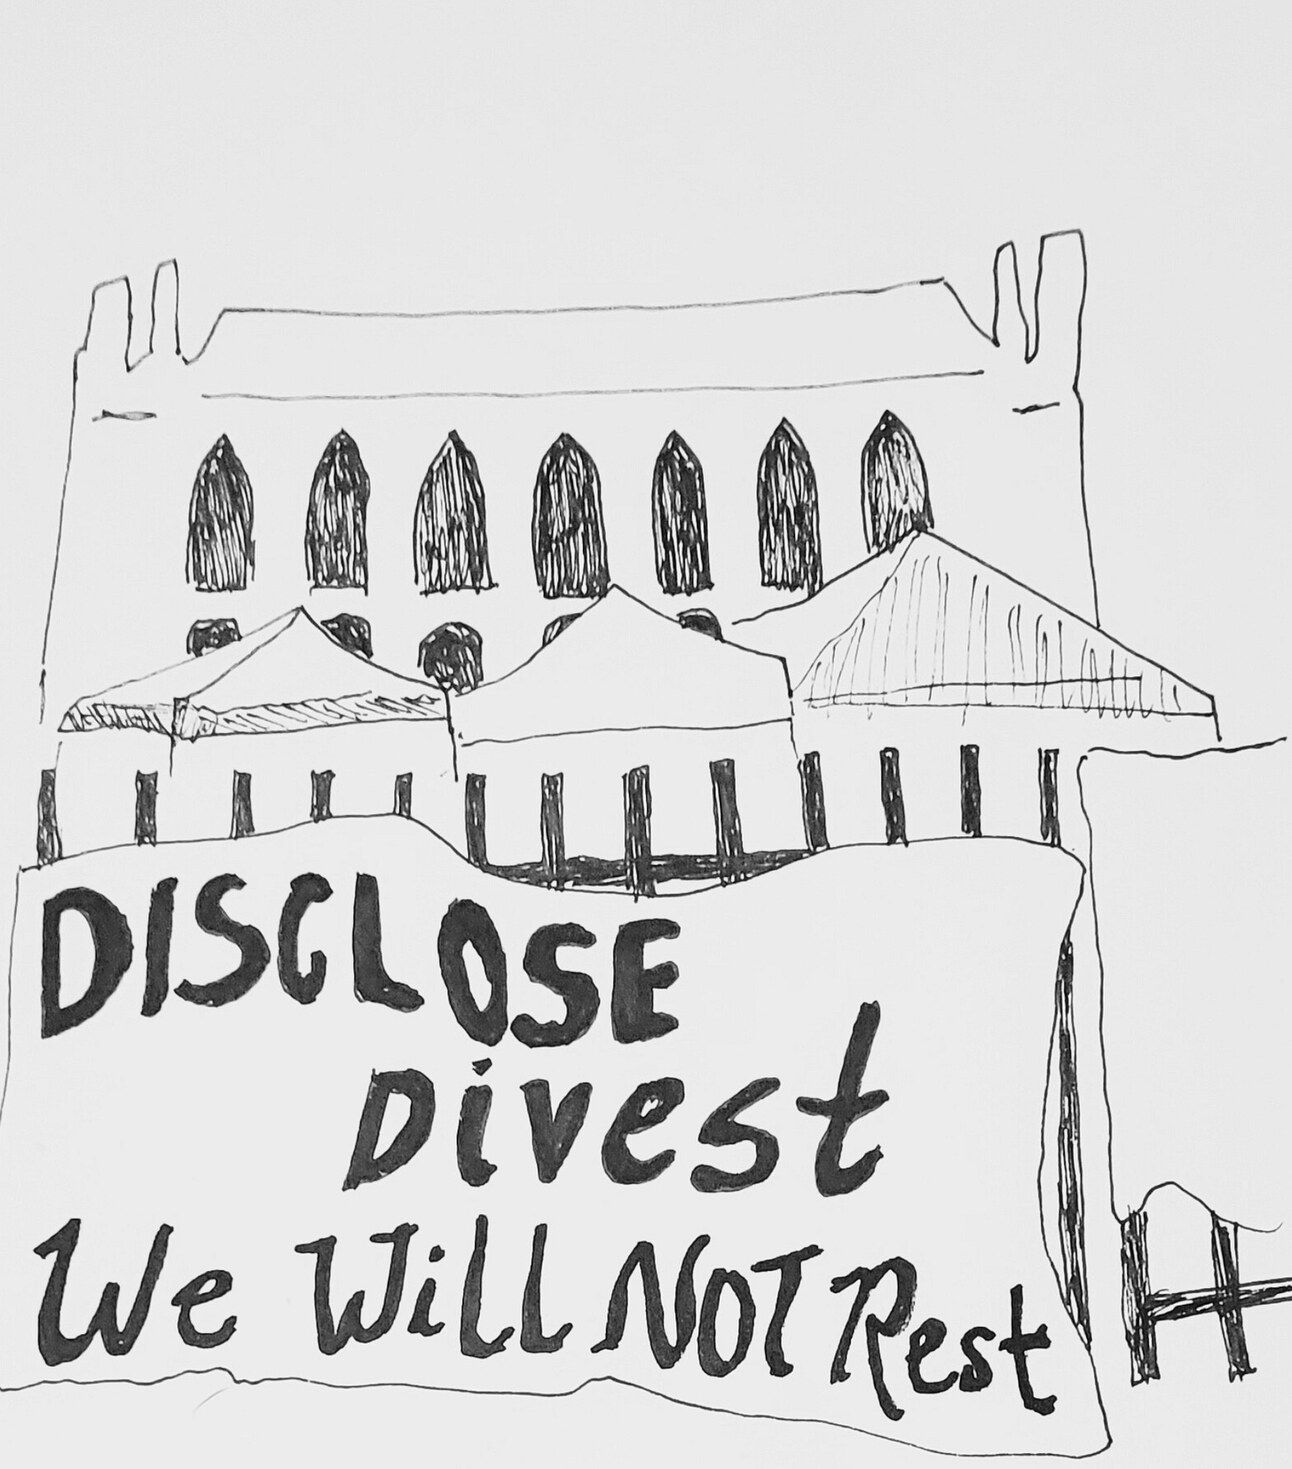 DISCLOSE
Divest
We Will NOT Rest